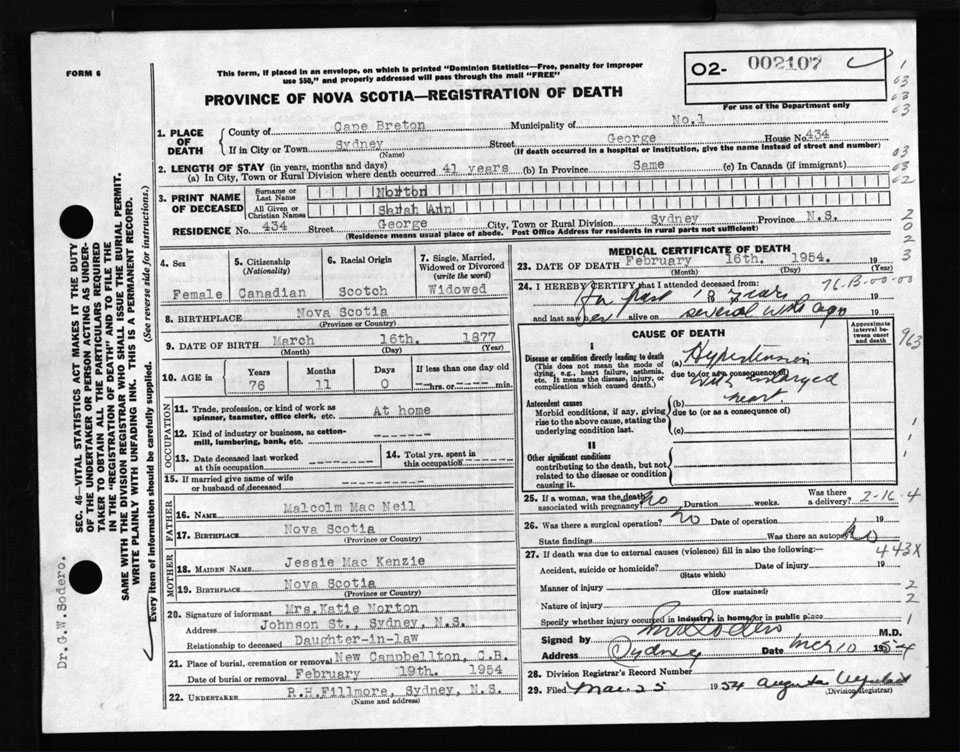 FORM 6
This form, if placed in an envelope, on which is printed "Dominion Statistics—Free, penalty for improper
use $50," and properly addressed will pass through the mail "FREE"
PROVINCE OF NOVA SCOTIA—REGISTRATION OF DEATH
O2- 002107
For use of the Department only
1. PLACE OF DEATH
County of Cape Breton Municipality of No.1
If in City or Town Sydney Street George House No. 434
(Name) (If death occurred in a hospital or institution, give the name instead of street and number)
2. LENGTH OF STAY (in years, months and days)
(a) In City, Town or Rural Division where death occurred 41 years (b) In Province Same (c) In Canada (if immigrant)
3. PRINT NAME OF DECEASED
Surname or Last Name Norton
All Given or Christian Names Sarah Ann
RESIDENCE No. 434 Street George City, Town or Rural Division Sydney Province N.S.
(Residence means usual place of abode. Post Office Address for residents in rural parts not sufficient)
4. Sex Female
5. Citizenship (Nationality) Canadian
6. Racial Origin Scotch
7. Single, Married, Widowed or Divorced (write the word) Widowed
8. BIRTHPLACE Nova Scotia
(Province or Country)
9. DATE OF BIRTH March 16th. 1877
(Month) (Day) (Year)
10. AGE in Years Months Days If less than one day old
76 11 0 hrs. or min.
OCCUPATION
11. Trade, profession, or kind of work as spinner, teamster, office clerk, etc. At home
12. Kind of industry or business, as cotton-mill, lumbering, bank, etc. -------
13. Date deceased last worked at this occupation --------
14. Total yrs. spent in this occupation -------
15. If married give name of wife or husband of deceased --------
FATHER
16. NAME Malcolm Mac Neil
17. BIRTHPLACE Nova Scotia
(Province or Country)
MOTHER
18. MAIDEN NAME Jessie Mac Kenzie
19. BIRTHPLACE Nova Scotia
(Province or Country)
20. Signature of informant Mrs.Katie Norton
Address Johnson St., Sydney, N.S.
Relationship to deceased Daughter-in-law
21. Place of burial, cremation or removal New Campbellton, C.B.
Date of burial or removal February 19th. 1954
22. UNDERTAKER R.H.Fillmore, Sydney, N.S.
(Name and address)
MEDICAL CERTIFICATE OF DEATH
23. DATE OF DEATH February 16th. 1954. 19
(Month) (Day) (Year)
24. I HEREBY CERTIFY that I attended deceased from:
for past 10 years 19
and last saw her alive on several wks ago 19
76.B.00-00
CAUSE OF DEATH
Approximate interval between onset and death
I
Disease or condition directly leading to death
(This does not mean the mode of dying, e.g., heart failure, asthenia, etc. It means the disease, injury, or complication which caused death.)
(a) Hypertension
due to (or as a consequence of)
with enlarged
heart
Antecedent causes
Morbid conditions, if any, giving rise to the above cause, stating the underlying condition last.
(b)
due to (or as a consequence of)
(c)
II
Other significant conditions
contributing to the death, but not related to the disease or condition causing it.
25. If a woman, was the death associated with pregnancy? no Duration weeks. Was there a delivery? 2-16-4
26. Was there surgical operation? no Date of operation 19
State findings Was there an autopsy? no
27. If death was due to external causes (violence) fill in also the following:—
443X
Accident, suicide or homicide? Date of injury 19
(State which)
Manner of injury
(How sustained)
Nature of injury
Specify whether injury occurred in industry, in home, or in public place
Signed by Sodero M.D.
Address Sydney Date Mch 10 1954
28. Division Registrar's Record Number
29. Filed Mar. 25 1954 Augusta
(Division Registrar)
SEC. 46—VITAL STATISTICS ACT MAKES IT THE DUTY
OF THE UNDERTAKER OR PERSON ACTING AS UNDER-
TAKER TO OBTAIN ALL THE PARTICULARS REQUIRED
IN THE "REGISTRATION OF DEATH" AND TO FILE THE
SAME WITH THE DIVISION REGISTRAR WHO SHALL ISSUE THE BURIAL PERMIT.
WRITE PLAINLY WITH UNFADING INK. THIS IS A PERMANENT RECORD.
Every item of information should be carefully supplied. (See reverse side for instructions.)
Dr.G.W.Sodero.
1
03
03
03
03
03
02
2
0
2
3
963
1
1
2
2